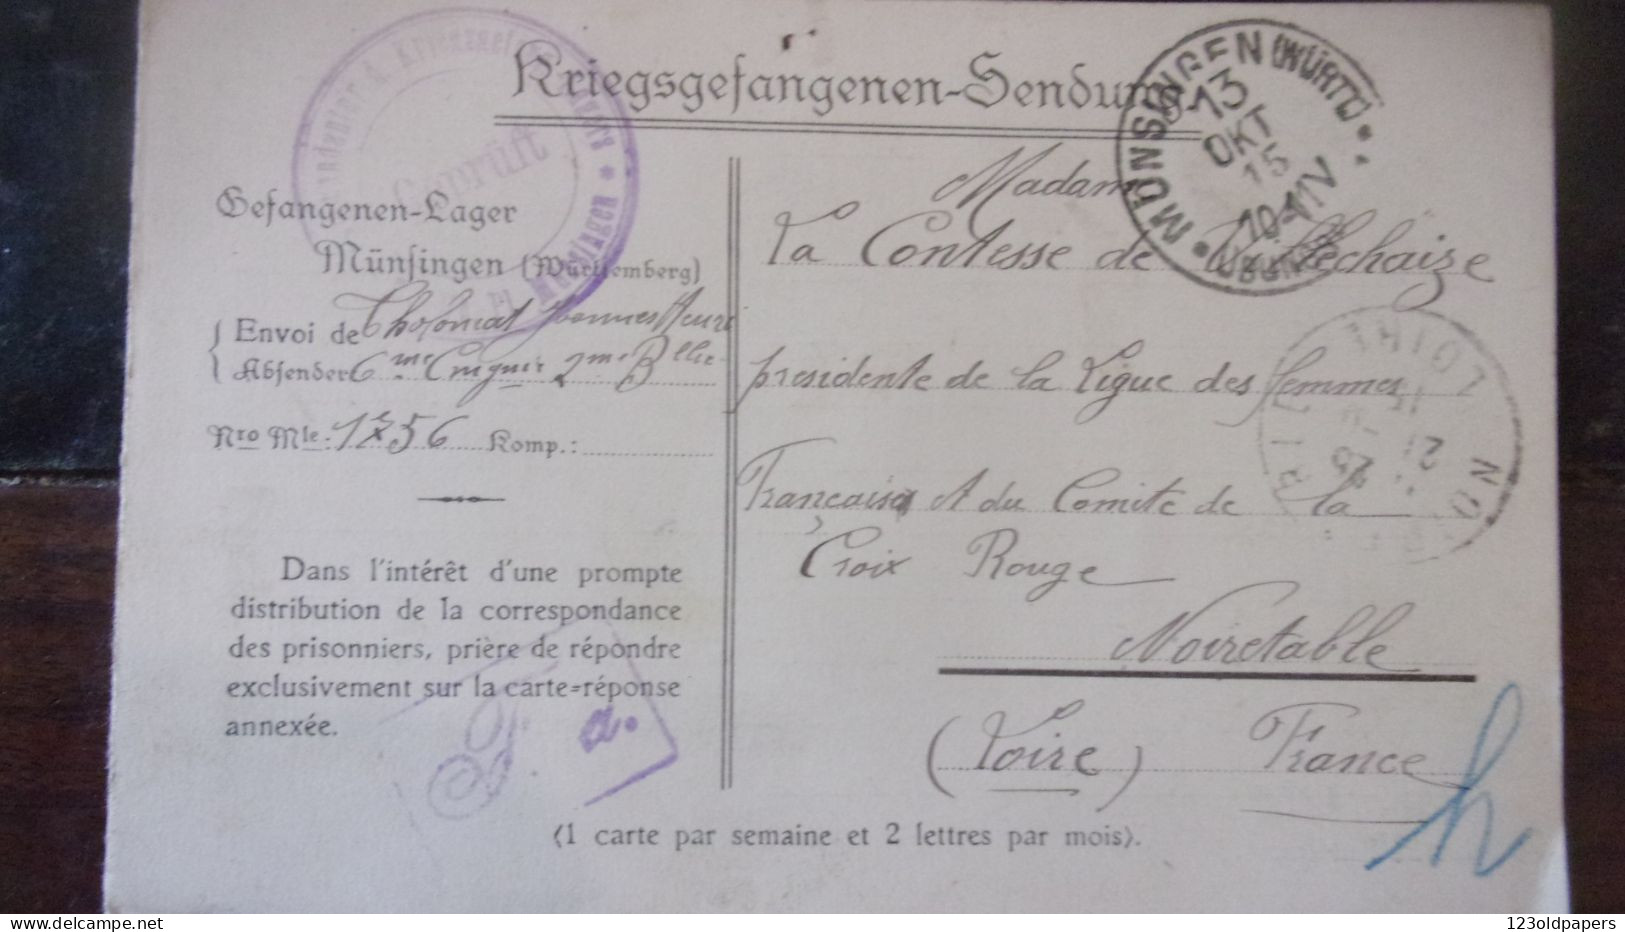 Kriegsgefangenen-Sendung.
Geprüft
MÜNSINGEN (WÜRTT.)
13
OKT
15
10-11 V
Gefangenen-Lager
Münsingen (Württemberg)
Envoi de
Absender 6me 2me Bllie
Nro Mle: 1256 Komp.:
Dans l'intérêt d'une prompte
distribution de la correspondance
des prisonniers, prière de répondre
exclusivement sur la carte=réponse
annexée.
F. a.
Madame
La Contesse de
presidente de la Ligue des femmes
Française et du Comité de la
Croix Rouge
Noiretable
(Loire) France
(1 carte par semaine et 2 lettres par mois).
h
123oldpapers